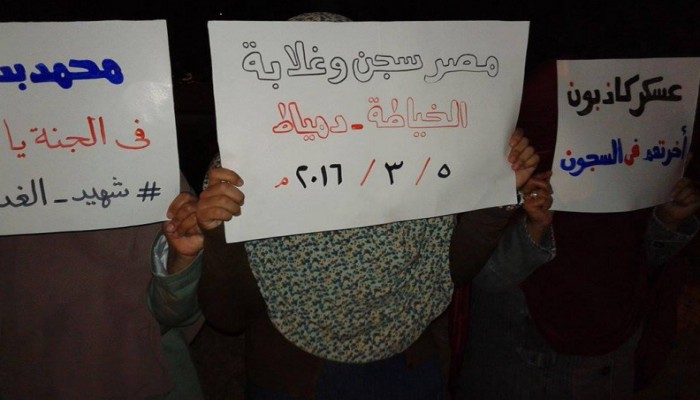 عسكر كاذبون
أخرتهم فى السجون
مصر سجن و غلابة
الخياطة - دمياط
٥ / ٣ / ٢٠١٦ م
محمد
فى الجنة يا
# شهيد -